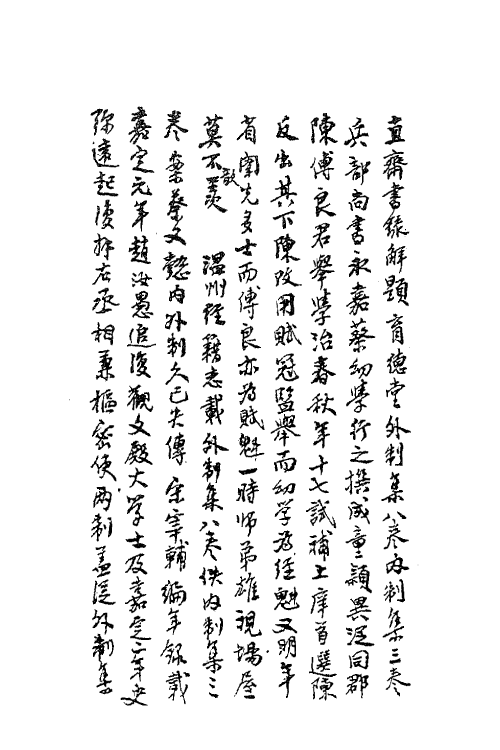 直齋書錄解題育德堂外制集八卷內制集三卷
兵部尚書永嘉蔡幼學行之撰成童穎異從同郡
陳傅良君舉學治春秋年十七試補上庠首選陳
反出其下陳改用賦冠監舉而幼学為經魁又明年
省闈先多士而傅良亦為賦魁一時师弟雄視場屋
莫不歆羨　溫州經籍志載外制集八卷佚內制集三
卷案蔡文懿內外制久已失傳宋宰輔編年錄載
嘉定元年趙汝愚追復觀文殿大学士及嘉定二年史
弥遠起復拜右丞相兼樞密使兩制盖從外制集